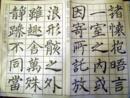 諸懷抱悟言
一室之內或
因寄所託放
浪形骸之外
雖趣舍萬殊
靜躁不同當